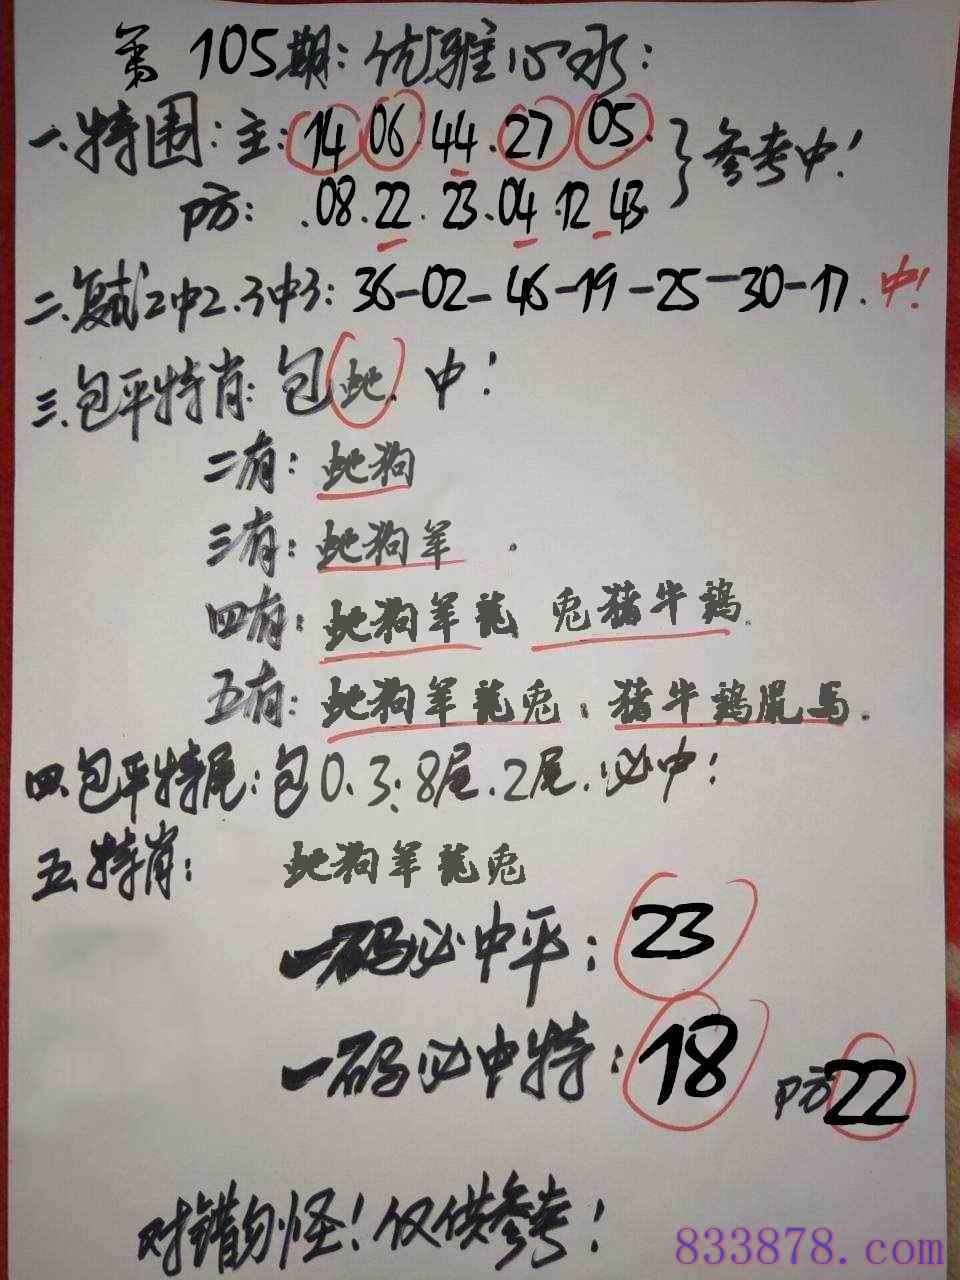 第105期:优雅心水:
一.特围:主:14 06 44.27 05.}参考中!
防:.08.22.23.04.12 43
二.复式2中2.3中3:36-02-46-19-25-30-17.中!
三.包平特肖:包蛇.中!
二有:蛇狗
三有:蛇狗羊.
四有:蛇狗羊龍 兔猪牛鷄.
五有:蛇狗羊龍兔:猪牛鷄鼠马.
四.包平特尾:包0.3:8尾.2尾.必中!
五.特肖:蛇狗羊龍兔
一码必中平:23
一码必中特:18 防22
对错勿怪!仅供参考!
833878.com